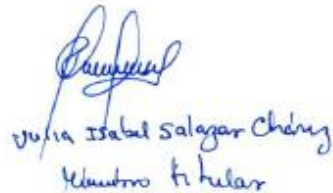 Julia Isabel Salazar Chávez
Miembro titular